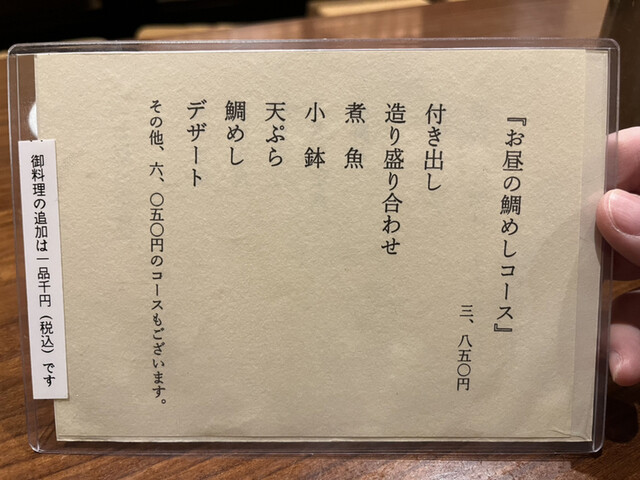 『お昼の鯛めしコース』
三、八五〇円
付き出し
造り盛り合わせ
煮魚
小鉢
天ぷら
鯛めし
デザート
その他、六、〇五〇円のコースもございます。
御料理の追加は一品千円（税込）です